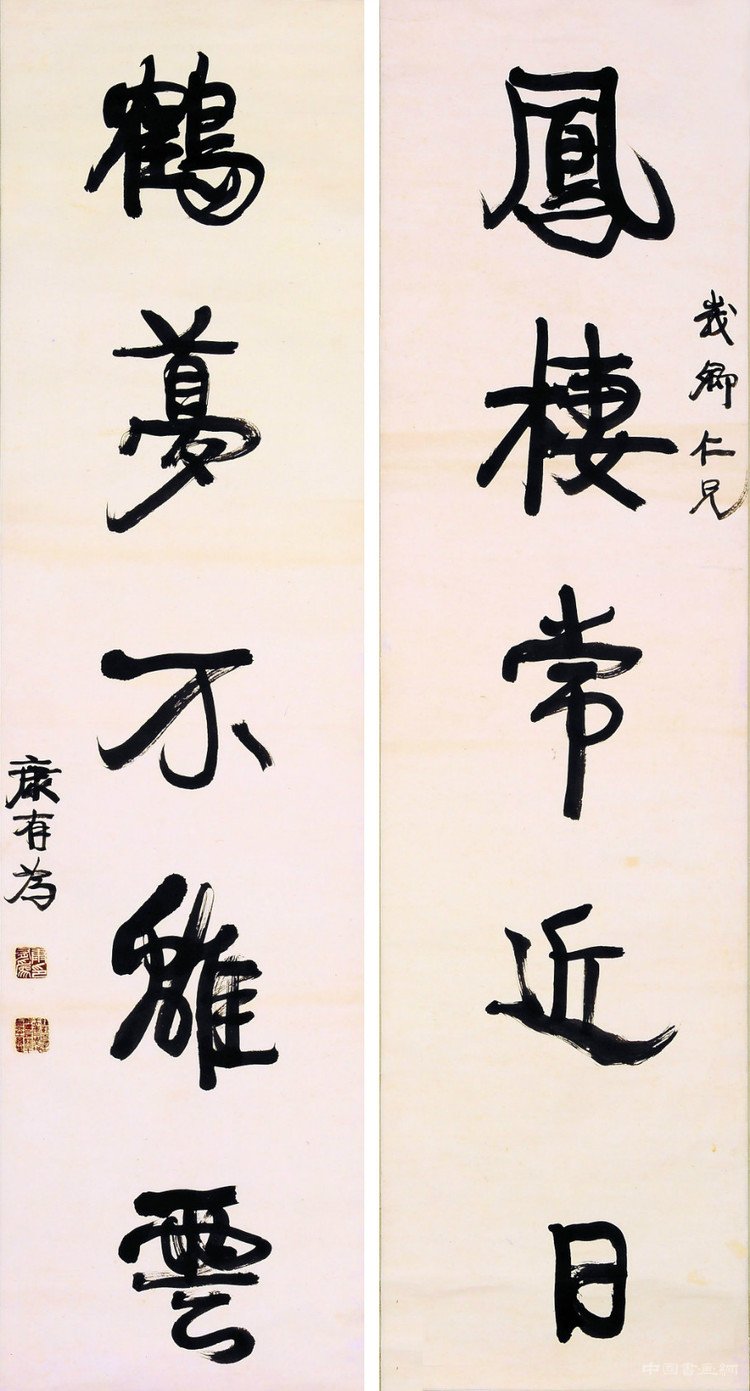 鳳棲常近日
仁兄
鶴夢不離雲
康有為
中国书画網